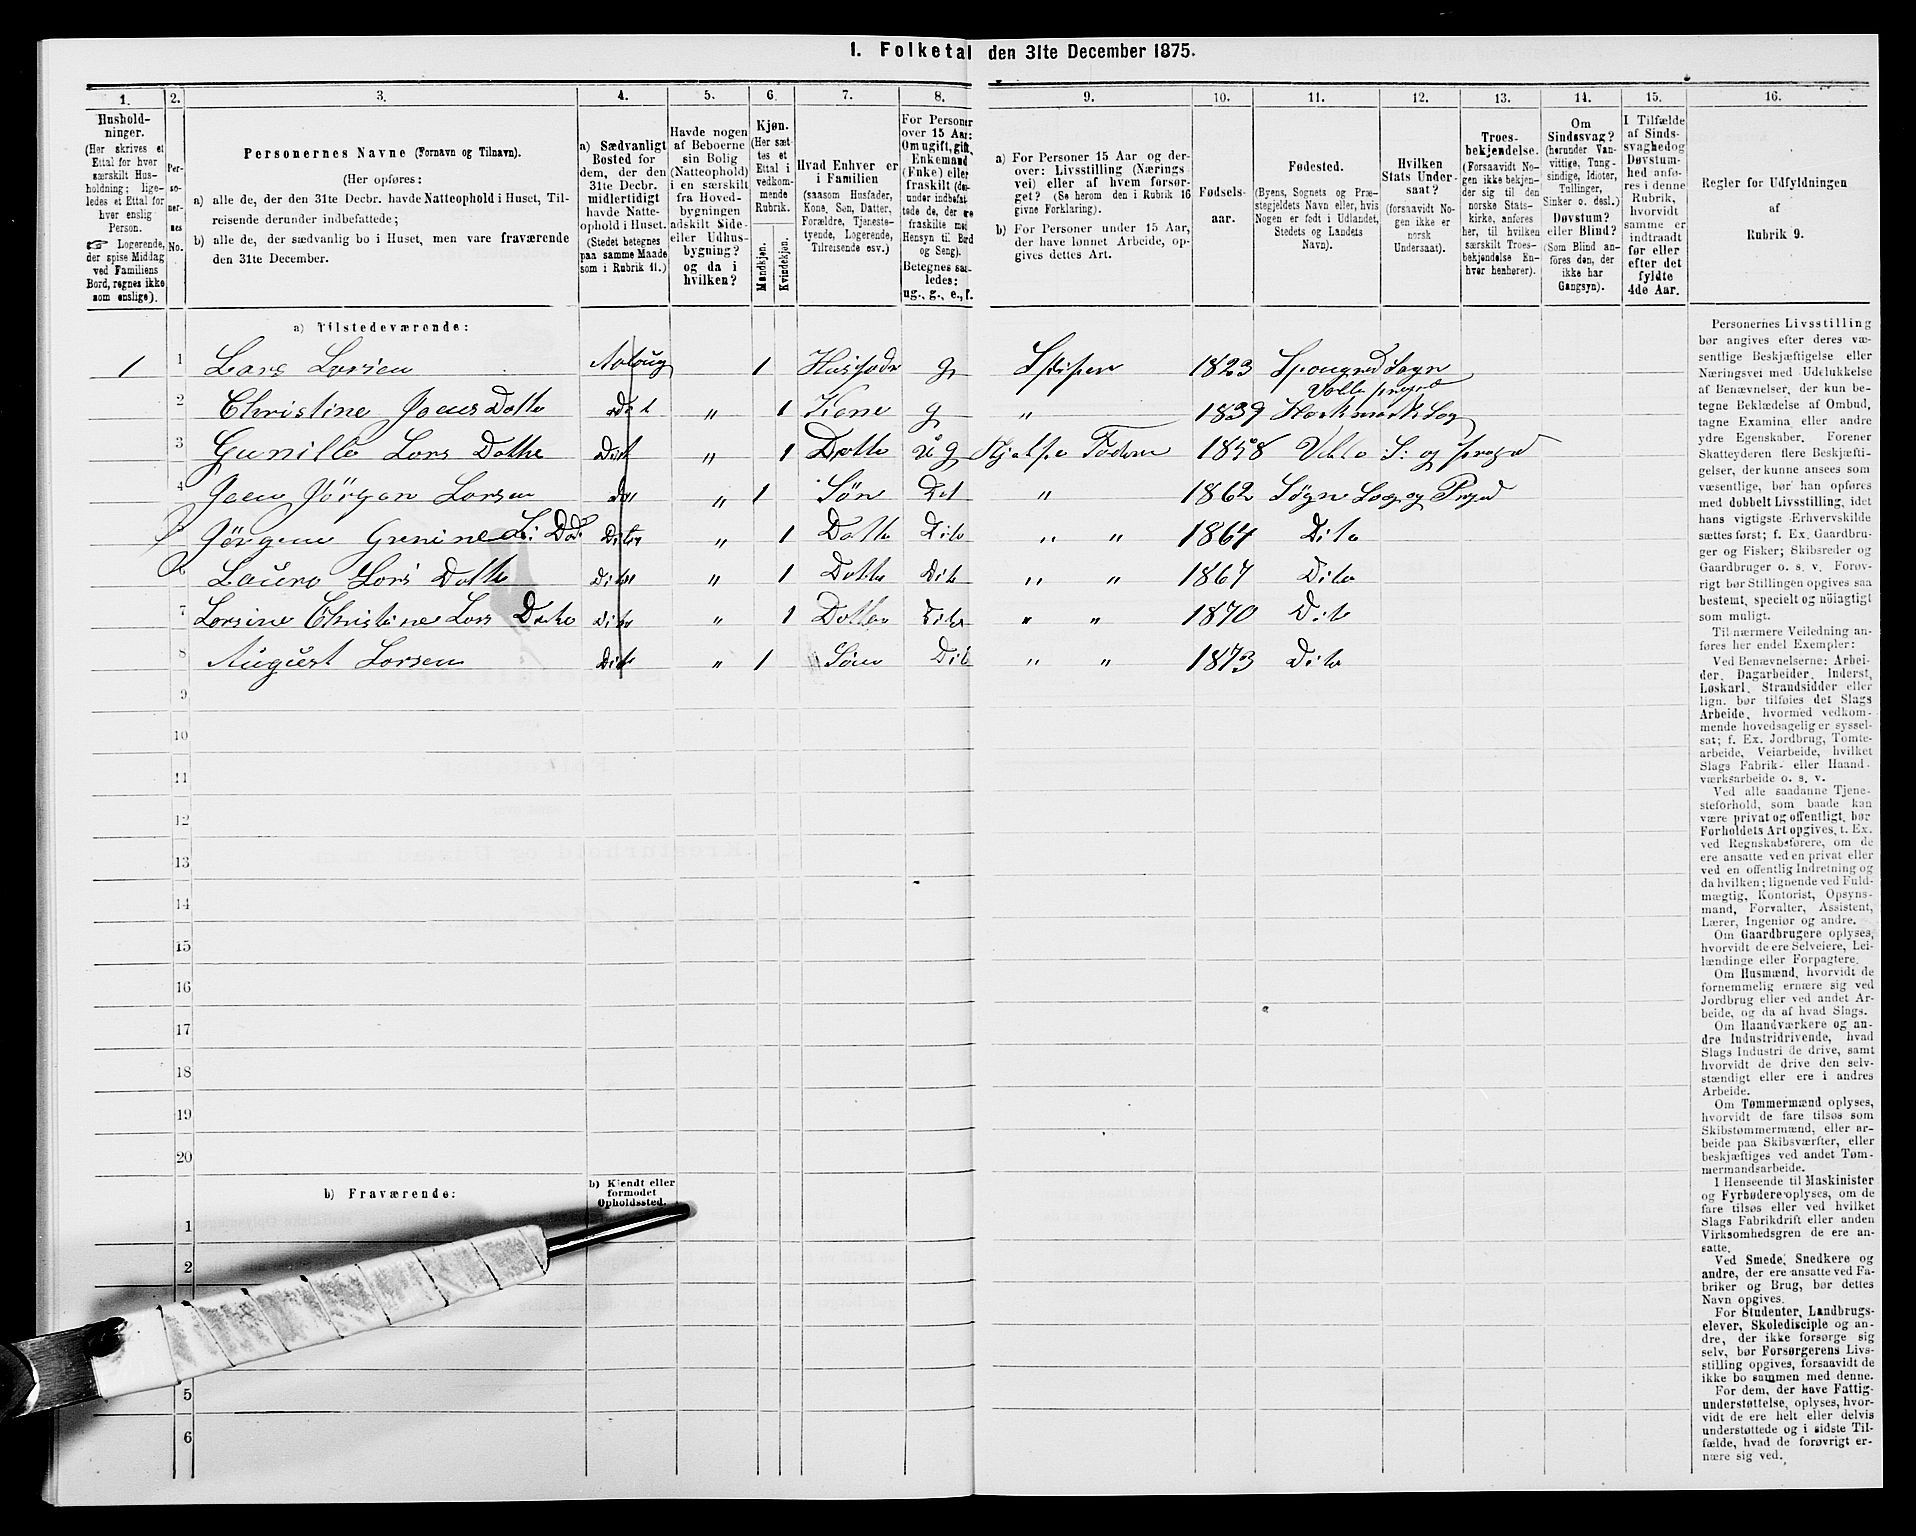 1. Folketal den 31te December 1875.
1. 2. 3. 4. 5. 6. 7. 8. 9. 10. 11. 12. 13. 14. 15. 16.
Hushold-
ninger.
(Her skrives et
Ettal for hver
særskilt Hus-
holdning; lige-
ledes et Ettal for
hver enslig
Person.
☞ Logerende,
der spise Middag
ved Familiens
Bord, regnes ikke
som enslige).
Per-
so-
ner-
nes
No.
Personernes Navne (Fornavn og Tilnavn).
(Her opføres:
a) alle de, der den 31te Decbr. havde Natteophold i Huset, Til-
reisende derunder indbefattede;
b) alle de, der sædvanlig bo i Huset, men vare fraværende
den 31te December.
a) Sædvanligt
Bosted for
dem, der den
31te Decbr.
midlertidigt
havde Natte-
ophold i Huset.
(Stedet betegnes
paa samme Maade
som i Rubrik 11.)
Havde nogen
af Beboerne
sin Bolig
(Natteophold)
i en særskilt
fra Hoved-
bygningen
adskilt Side-
eller Udhus-
bygning?
og da i
hvilken?
Kjøn.
(Her sæt-
tes et
Ettal i
vedkom-
mende
Rubrik.
Mandkjøn.
Kvindekjøn.
Hvad Enhver er
i Familien
(saasom Husfader,
Kone, Søn, Datter,
Forældre, Tjeneste-
tyende, Logerende,
Tilreisende osv.)
For Personer
over 15 Aar:
Om ugift, gift,
Enkemand
(Enke) eller
fraskilt (der-
under indbefat-
tede de, der ere
fraskilte med
Hensyn til Bord
og Seng).
Betegnes saa-
ledes:
ug., g., e., f.
a) For Personer 15 Aar og der-
over: Livsstilling (Nærings-
vei) eller af hvem forsør-
get? (Se herom den i Rubrik 16
givne Forklaring).
b) For Personer under 15 Aar,
der have lønnet Arbeide, op-
gives dettes Art.
Fødsels-
aar.
Fødested.
(Byens, Sognets og Præ-
stegjeldets Navn eller, hvis
Nogen er født i Udlandet,
Stedets og Landets
Navn).
Hvilken
Stats Under-
saat?
(forsaavidt No-
gen ikke er
norsk
Undersaat).
Troes-
bekjendelse.
(Forsaavidt No-
gen ikke bekjen-
der sig til den
norske Stats-
kirke, anføres
her, til hvilken
særskilt Troes-
bekjendelse En-
hver henhører).
Om
Sindssvag?
(herunder Van-
vittige, Tung-
sindige, Idioter,
Tullinger,
Sinker o. desl.)
Døvstum?
eller Blind?
(Som Blind an-
føres den, der
ikke har
Gangsyn).
I Tilfælde
af Sinds-
svaghed og
Døvstum-
hed anfø-
res i denne
Rubrik,
hvorvidt
samme er
indtraadt
før eller
efter det
fyldte
4de Aar.
Regler for Udfyldningen
af
Rubrik 9.
a) Tilstedeværende:
1 1 Lars Lorsen 1 Husfader g 1823 Spangred Sogn
Valle Prgd
2 Christine Jaens Datte " 1 Kone g " 1839 Harkmark Sog
3 Gunille Lars Dathe Dit " 1 Datte ug Hjelper Faderen 1858 Valle S: og Prægd
4 Jaen Jörgen Larsen " 1 Søn Dit " 1862 Søgne Sog og Prgd
5 Jörgene L: Dat Dito " 1 Datte Dito " " 1864 Dito
6 Laura Lars Datte Dito " 1 Datte Dito " " 1867 Dito
7 Larsine Christine Lars Datte Dito " 1 Datter Dito " " 1870 Dito
8 August Larsen Dito " 1 Søn Dito " " 1873 Dito
9
10
11
12
13
14
15
16
17
18
19
20
b) Fraværende:
b) Kjendt eller
formodet
Opholdssted.
1
2
5
6
Personernes Livsstilling
bør angives efter deres væ-
sentlige Beskjæftigelse eller
Næringsvei med Udelukkelse
af Benævnelser, der kun be-
tegne Beklædelse af Ombud,
tagne Examina eller andre
ydre Egenskaber. Forener
Skatteyderen flere Beskjæfti-
gelser, der kunne ansees som
væsentlige, bør han opføres
med dobbelt Livsstilling, idet
hans vigtigste Erhvervskilde
sættes først; f. Ex. Gaardbru-
ger og Fisker; Skibsreder og
Gaardbruger o. s. v. Forøv-
rigt bør Stillingen opgives saa
bestemt, specielt og nöiagtigt
som muligt.
Til nærmere Veiledning an-
føres her endel Exempler:
Ved Benævnelserne: Arbei-
der, Dagarbeider, Inderst,
Løskarl, Strandsidder eller
lign. bør tilføies det Slags
Arbeide, hvormed vedkom-
mende hovedsagelig er syssel-
sat; f. Ex. Jordbrug, Tomte-
arbeide, Veiarbeide, hvilket
Slags Fabrik- eller Haand-
værksarbeide o. s. v.
Ved alle saadanne Tjene-
steforhold, som baade kan
være privat og offentligt, bør
Forholdets Art opgives, f. Ex.
ved Regnskabsførere, om de
ere ansatte ved en privat eller
ved en offentlig Indretning og
da hvilken; lignende ved Fuld-
mægtig, Kontorist, Opsyns-
mand, Forvalter, Assistent,
Lærer, Ingeniør og andre.
Om Gaardbrugere oplyses,
hvorvidt de ere Selveiere, Lei-
lændinge eller Forpagtere.
Om Husmænd, hvorvidt de
fornemmelig ernære sig ved
Jordbrug eller ved andet Ar-
beide, og da af hvad Slags.
Om Haandværkere og an-
dre Industridrivende, hvad
Slags Industri de drive, samt
hvorvidt de drive den selv-
stændigt eller ere i andres
Arbeide.
Om Tømmermænd oplyses,
hvorvidt de fare tilsøs som
Skibstømmermænd, eller ar-
beide paa Skibsværfter, eller
beskjæftiges ved andet Tøm-
mermandsarbeide.
I Henseende til Maskinister
og Fyrbødere oplyses, om de
fare tilsøs eller ved hvilket
Slags Fabrikdrift eller anden
Virksomhedsgren de ere an-
satte.
Ved Smede, Snedkere og
andre, der ere ansatte ved Fa-
briker og Brug, bør dettes
Navn opgives.
For Studenter, Landbrugs-
elever, Skoledisciple og an-
dre, der ikke forsørge sig
selv, bør Forsørgerens Livs-
stilling opgives, forsaavidt de
ikke bo sammen med denne.
For dem, der have Fattig-
understøttelse, oplyses, hvor-
vidt de ere helt eller delvis
understøttede og i sidste Til-
fælde, hvad de forøvrigt er-
nære sig ved.